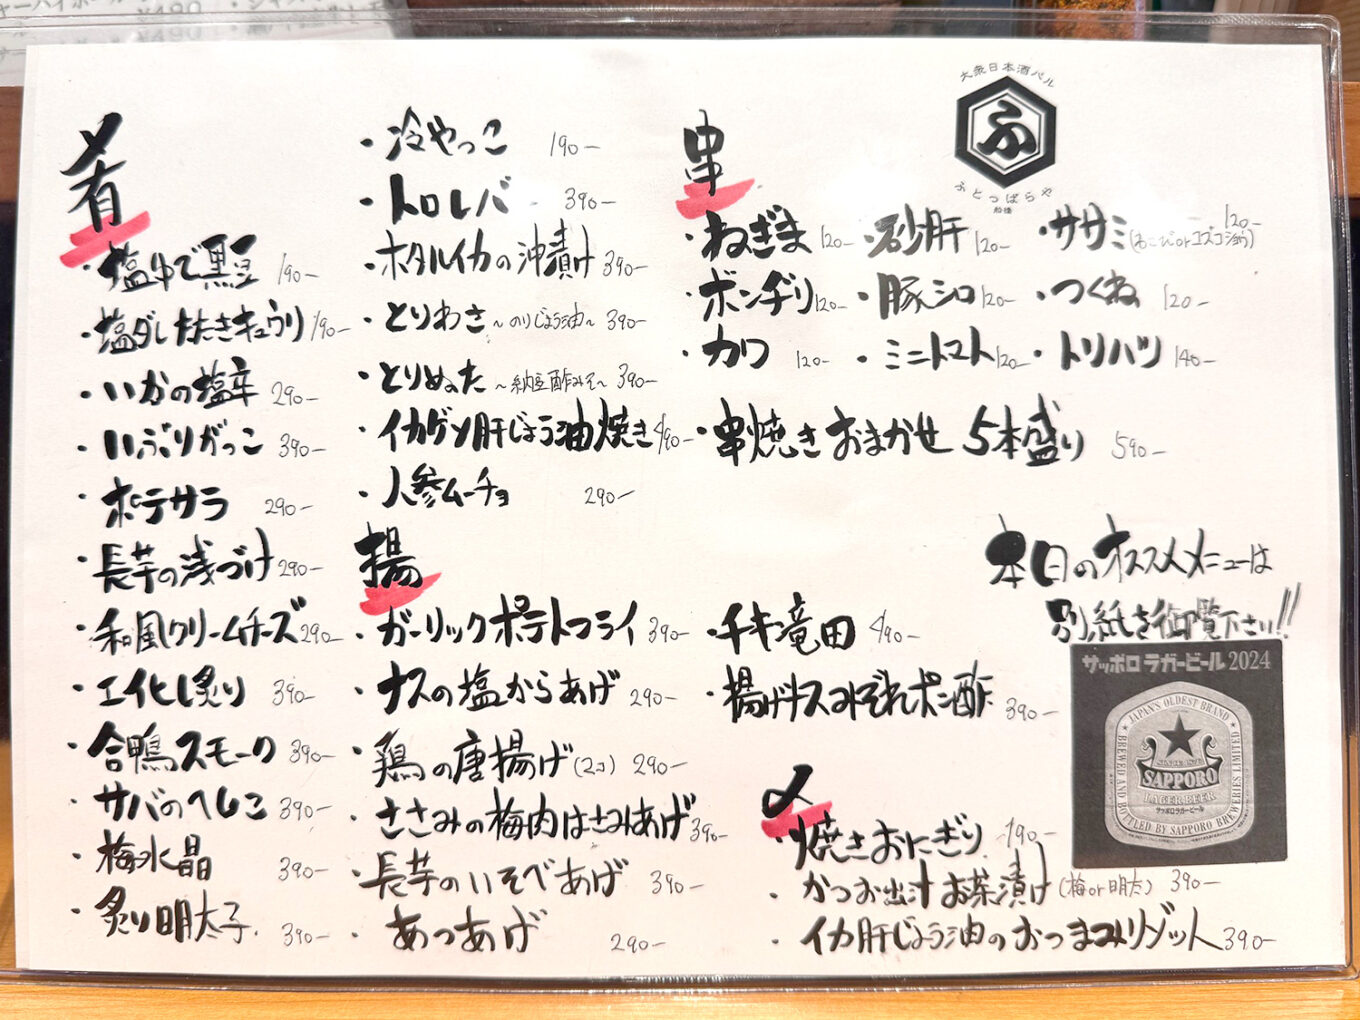 肴
・塩ゆで黒豆 190-
・塩ダレたたきキュウリ 190-
・いかの塩辛 290-
・いぶりがっこ 390-
・ポテサラ 290-
・長芋の浅づけ 290-
・和風クリームチーズ 290-
・エイヒレ炙り 390-
・合鴨スモーク 390-
・サバのへしこ 390-
・梅水晶 390-
・炙り明太子 390-
・冷やっこ 190-
・トロレバ 390-
・ホタルイカの沖漬け 390-
・とりわさ ~のりじょう油~ 390-
・とりぬた ~納豆酢みそ~ 390-
・イカゲソ肝じょう油焼き 490-
・人参ムーチョ 290-
揚
・ガーリックポテトフライ 390-
・ナスの塩からあげ 290-
・鶏の唐揚げ(2コ) 290-
・ささみの梅肉はさみあげ 390-
・長芋のいそべあげ 390-
・あつあげ 290-
・チキン竜田 490-
・揚げナスみぞれポン酢 390-
串
・ねぎま 120- ・砂肝 120- ・ササミ(わさびorユズコショウ) 120-
・ボンヂリ 120- ・豚シロ 120- ・つくね 120-
・カワ 120- ・ミニトマト 120- ・トリハツ 140-
・串焼きおまかせ 5本盛り 590-
〆
・焼きおにぎり 190-
・かつお出汁お茶漬け(梅or明太) 390-
・イカ肝じょう油のおつまみリゾット 390-
大衆日本酒バル
ふ
ふとっぱらや
船橋
本日のオススメメニューは
別紙を御覧下さい!!
サッポロラガービール2024
★ JAPAN'S OLDEST BRAND ★
BREWED AND BOTTLED BY SAPPORO BREWERIES LIMITED
SINCE 1876
SAPPORO
LAGER BEER
サッポロラガービール